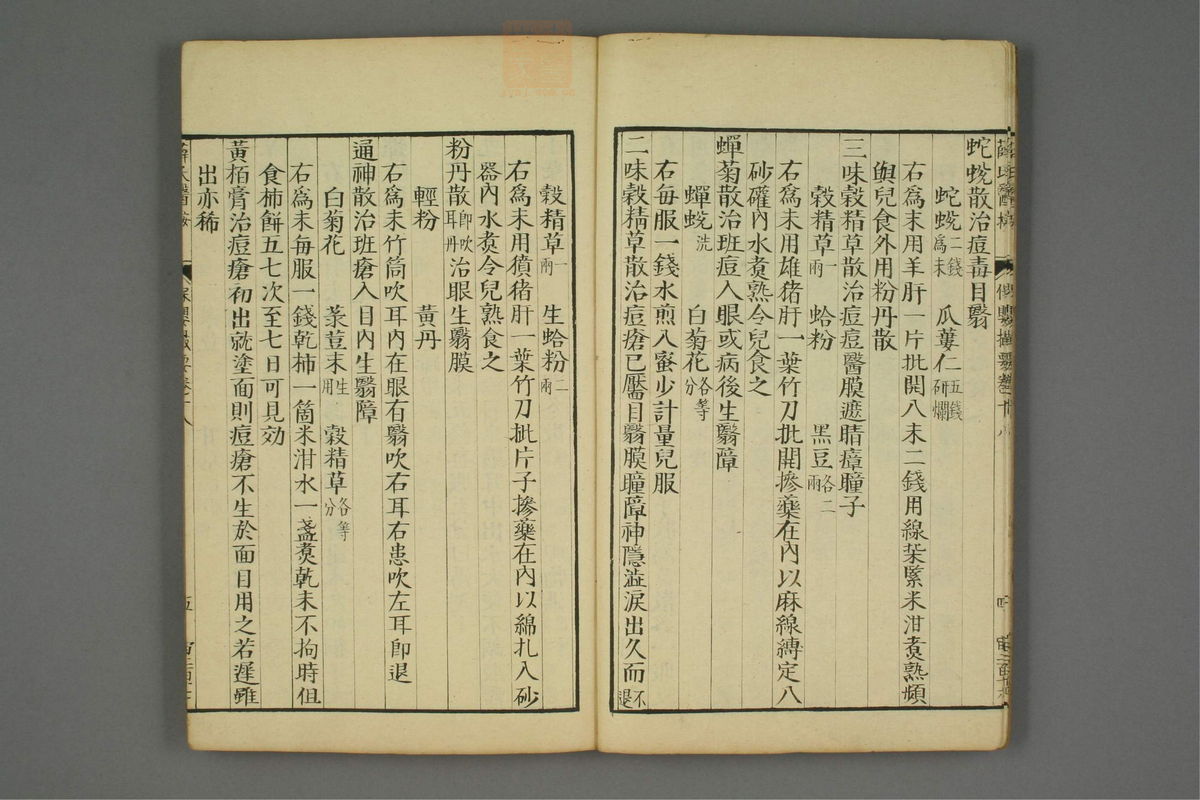 蛇蛻散治痘毒目翳
蛇蛻二錢爲末 瓜蔞仁五錢研爛
右爲末用羊肝一片批開入末二錢用線朶緊米泔煑熟頻
與兒食外用粉丹散
三味穀精草散治痘痘醫膜遮睛瘴瞳子
穀精草一兩 蛤粉 黑豆各二兩
右爲末用雄猪肝一葉竹刀批開摻藥在內以麻線縛定入
砂礶內水煑熟令兒食之
蟬菊散治班痘入眼或病後生翳障
蟬蛻洗 白菊花各等分
右每服一錢水煎入蜜少計量兒服
二味穀精草散治痘瘡已靨目翳膜瞳障神隱澁淚出久而不退
穀精草一兩 生蛤粉二兩
右爲末用獖猪肝一葉竹刀批片子摻藥在內以綿扎入砂
器內水煑令兒熟食之
粉丹散即吹耳丹治眼生翳膜
輕粉 黃丹
右爲末竹筒吹耳內在眼有翳吹右耳右患吹左耳卽退
通神散治班瘡入目內生翳障
白菊花 菉荳末生用 穀精草各等分
右爲末每服一錢乾柿一箇米泔水一盞煑乾未不拘時但
食柿餅五七次至七日可見効
黃栢膏治痘瘡初出就塗面則痘瘡不生於面目用之若遲雖
出亦稀